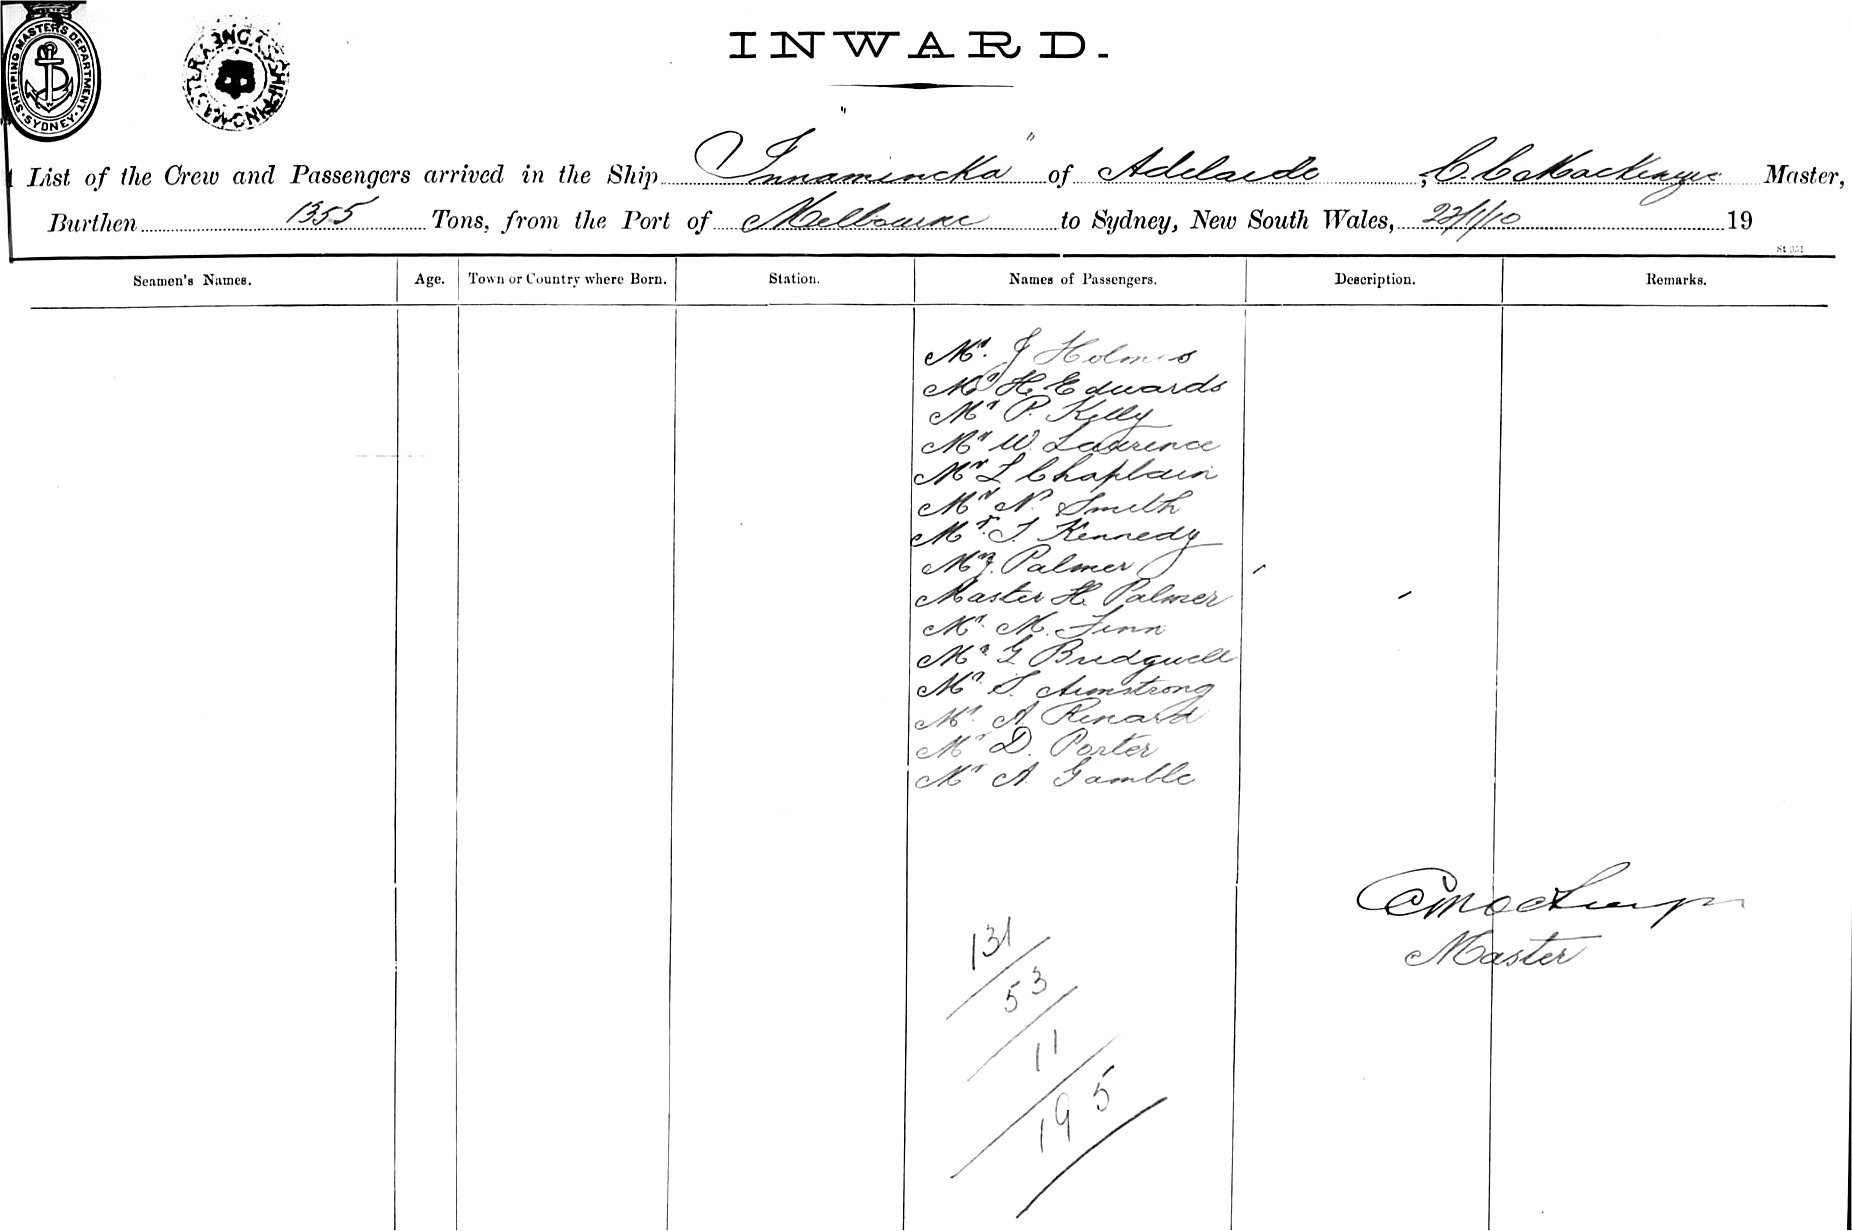 SHIPPING MASTERS DEPARTMENT. SYDNEY.
INWARD.
List of the Crew and Passengers arrived in the Ship "Innamincka" of Adelaide, C. C. Mackenzie Master,
Burthen 1355 Tons, from the Port of Melbourne to Sydney, New South Wales, 23/1/10 19
Seamen's Names. Age. Town or Country where Born. Station. Names of Passengers. Description. Remarks.
Mr. J Holmes
Mr H. Edwards
Mr P. Kelly
Mr W. Lawrence
Mr L Chaplain
Mr N. Smith
Mr. T. Kennedy
Mr J. Palmer
Master H. Palmer
Mr. M. Finn
Mr. G Bridgwell
Mr. S. Armstrong
Mr. A. Renard
Mr D. Porter
Mr A. Gamble
Master
131
53
11
195